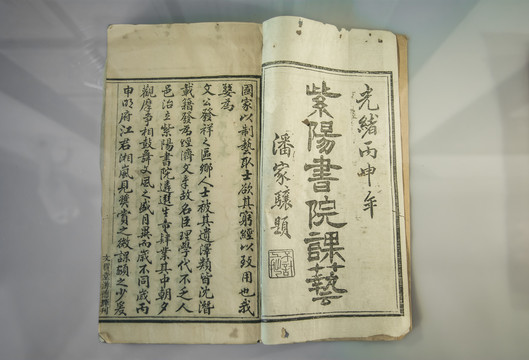 光緒丙申年
紫陽書院課藝
潘家驤題
國家以制藝取士欲其窮經以致用也我
婺為
文公發祥之區鄉人士被其遺澤類皆沈潛
載籍發為經濟文章故名臣理學代不乏人
邑治立紫陽書院遴選生童肄業其中朝夕
觀摩爭相鼓舞文風之盛月異而歲不同歲丙
申明府江右湘嵐見獎賞之微課額之少爰